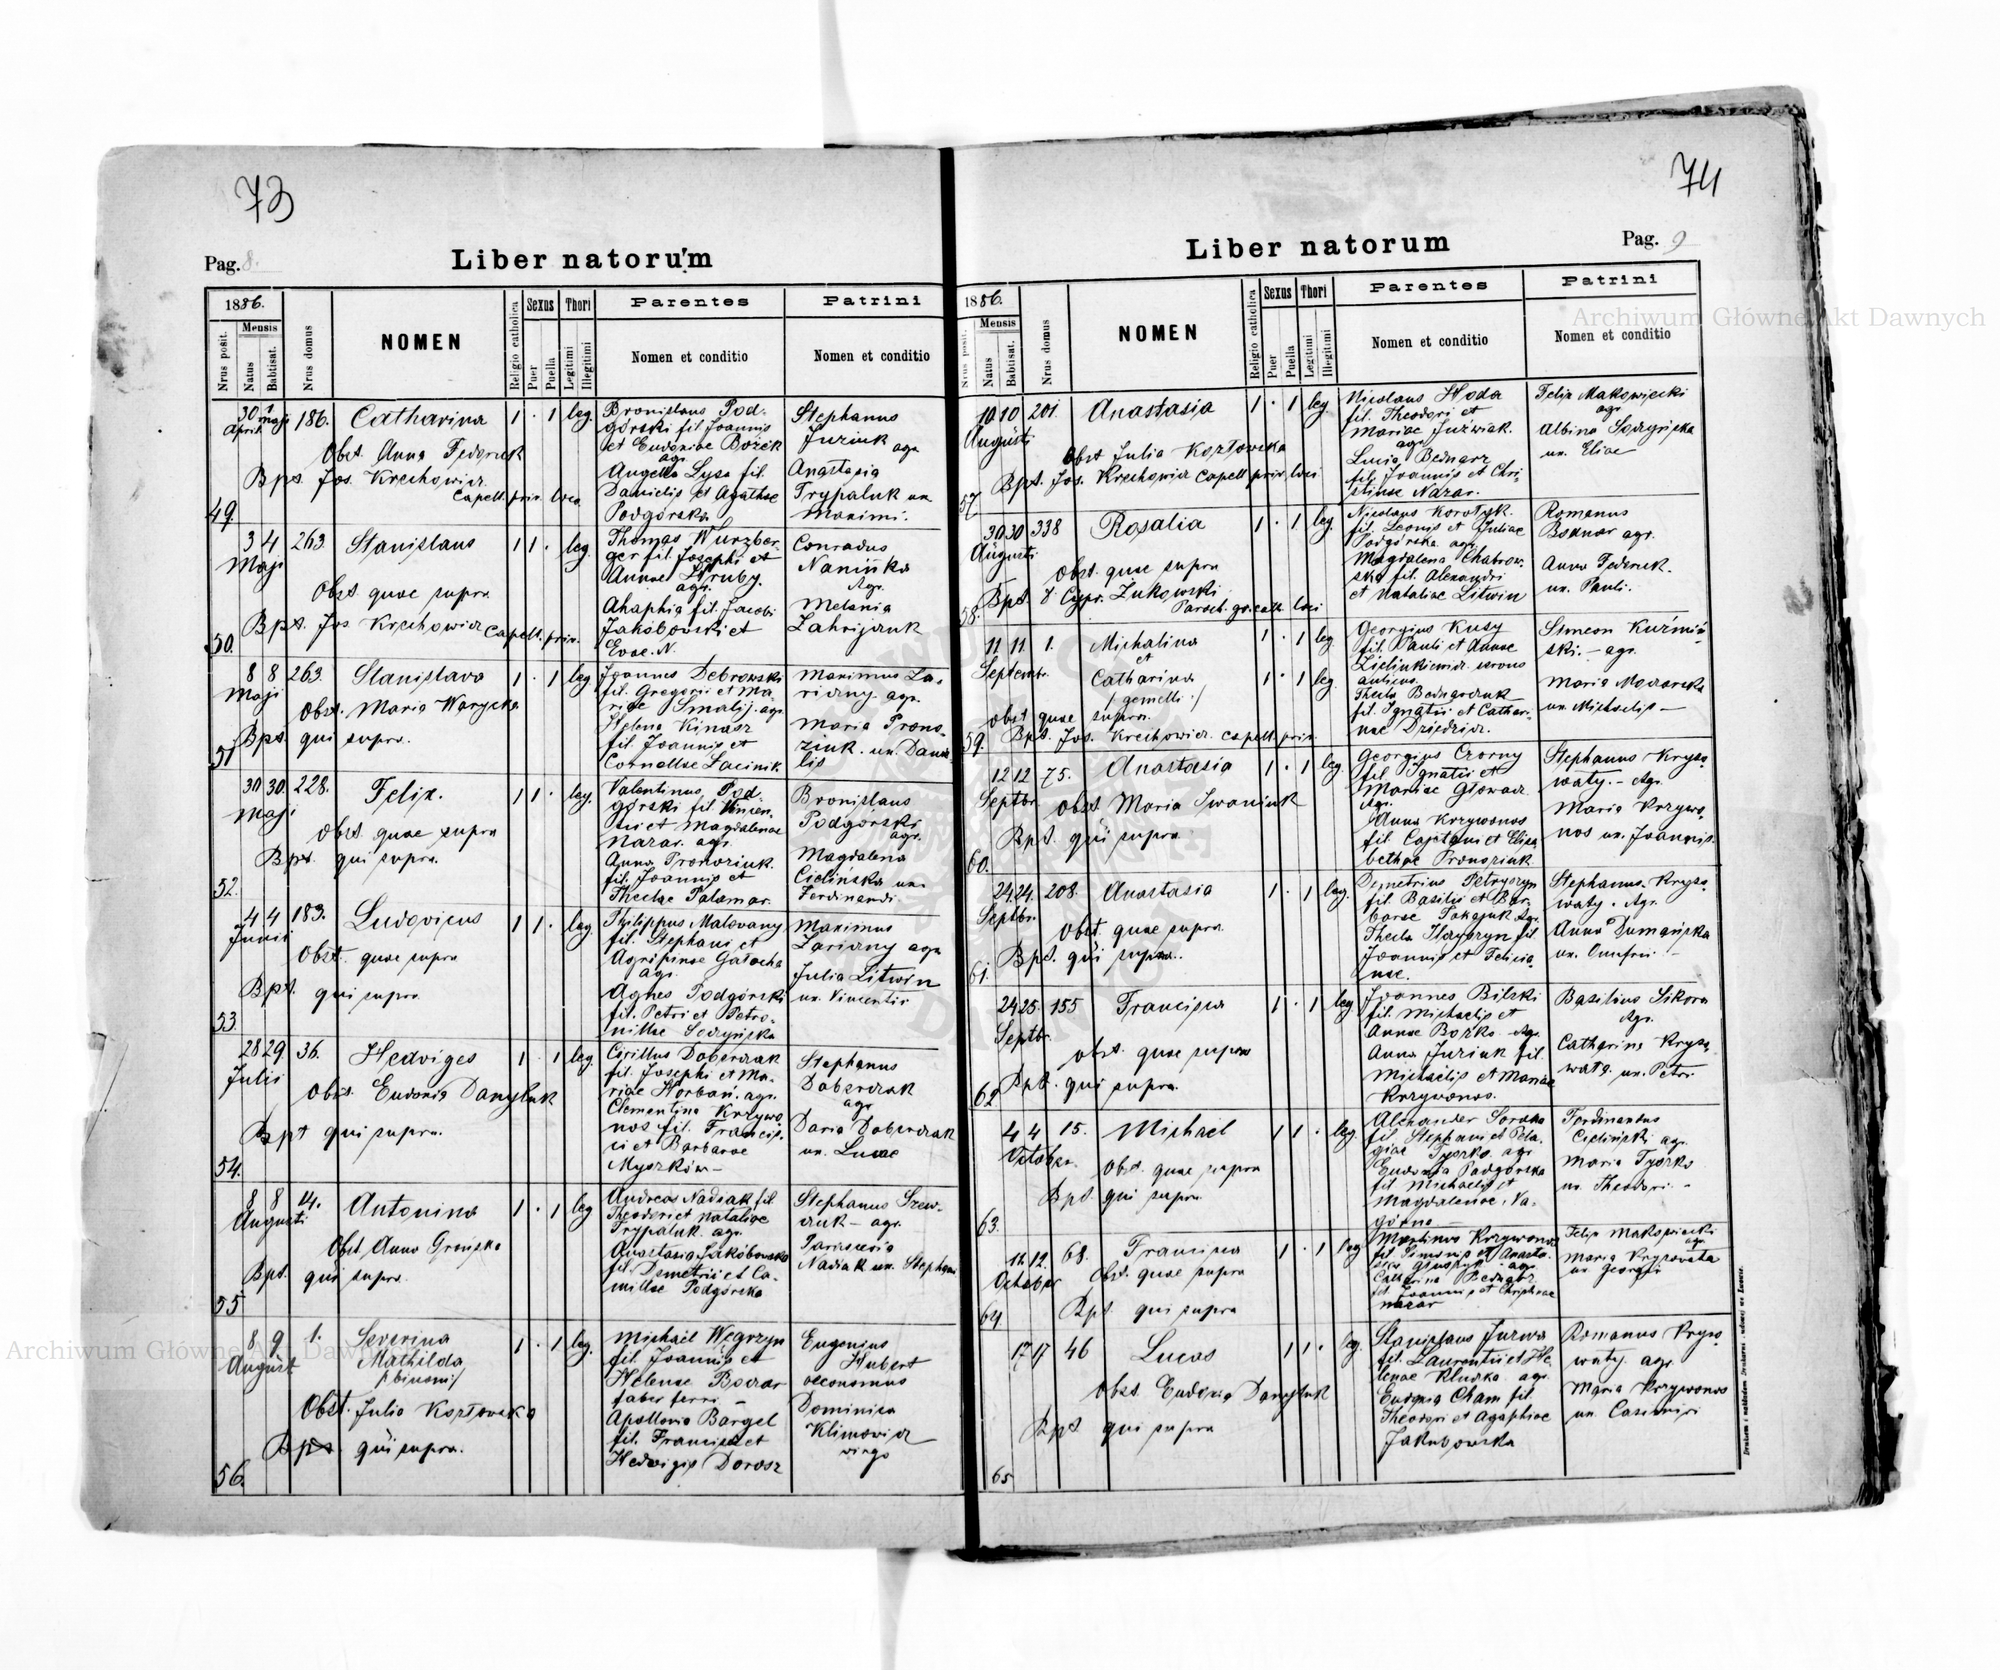 73
Pag. 8.
Liber natorum
1886.
Nrus posit.
Mensis
Natus
Babtisat.
Nrus domus
NOMEN
Religio catholica
Sexus
Puer
Puella
Thori
Legitimi
Illegitimi
Parentes
Nomen et conditio
Patrini
Nomen et conditio
49.
30 1
Aprili maji
186.
Catharina
1 · 1 leg.
Obst. Anna Federuk
Bpt. Jos. Krechowicz
Capell. priv. loco.
Bronislaus Pod-
górski fil Joannis
et Eudoxiae Bozek
agr.
Angella Lysa fil.
Danielis et Agathae
Podgórska
Stephanus
Juziuk agr.
Anastasia
Trypaluk ux.
Maximi.
50.
3 4
Maji
263.
Stanislaus
1 1 · leg.
Obst. quae supra
Bpt. Jos Krechowicz Capell. priv.
Thomas Wurzber-
ger fil. Josephi et
Annae Hruby.
agr.
Ahaphia fil. Jacobi
Jakóbowski et
Evae. N.
Conradus
Naninka
Agr.
Melania
Zahrijczuk
51
8 8
Maji
263.
Stanislava
1 · 1 leg.
Obst. Maria Waryska
Bpt. qui supra.
Joannes Debrowski
fil. Gregorii et Ma-
riae Smalij. agr.
Helena Kinasz
fil. Joannis et
Corneliae Lacinik
Maximus La-
riczny. agr.
Maria Prono-
ziuk. ux. Danie
lis
52.
30 30.
Maji
228.
Felix.
1 1 · leg.
Obst. quae supra
Bpt. qui supra.
Valentinus Pod-
górski fil Vincen-
tii et Magdalenae
Nazar. agr.
Anna Pronoziuk.
fil. Joannis et
Theclae Palamar.
Bronislaus
Podgorski
agr.
Magdalena
Cielińska ux.
Ferdinandi
53.
4 4
Junii
183.
Ludovicus
1 1 · leg
Obst. quae supra
Bpt. qui supra
Philippus Malowany
fil. Stephani et
Agripinae Galocha
agr.
Agnes Podgórski
fil. Petri et Petro-
nillae Sodzyńska
Maximus
Zariczny agr
Julia Litwin
ux. Vincentii
54.
28 29
Julii
36.
Hedviges
1 · 1 leg
Obst. Eudoxia Danyluk
Bpt qui supra.
Cirillus Doberczak
fil. Josephi et Ma-
riae Horbań. agr.
Clementina Krzywo
nos fil. Francis-
ci et Barbarae
Myszków-
Stephanus
Doberczak
agr
Daria Doberczak
ux. Lucae
55
8 8
Augusti
14.
Antonina
1 · 1 leg
Obst. Anna Grońska
Bpt. qui supra.
Andreas Nadiak fil.
Theodori et Nataliae
Trypaluk. agr.
Anastasia Jakóbowska
fil. Demetrii et Ca-
millae Podgórska
Stephanus Szew-
czuk - agr.
Parascevia
Nadiak ux. Stephani
56.
8 9.
August
1.
Severina
Mathilda
/:binomi:/
1 · 1 leg.
Obst. Julia Kozłowska
Bpt. qui supra.
Michaël Węgrzyn
fil. Joannis et
Helenae Boczar
faber ferri -
Apollonia Bargel
fil. Francisci et
Hedvigis Dorosz
Eugenius
Hubert
oeconomus
Dominica
Klimowicz
virgo
74
Pag. 9
Liber natorum
1886.
Nrus posit.
Mensis
Natus
Babtisat.
Nrus domus
NOMEN
Religio catholica
Sexus
Puer
Puella
Thori
Legitimi
Illegitimi
Parentes
Nomen et conditio
Patrini
Nomen et conditio
57
10 10
Augusti
201.
Anastasia
1 · 1 leg
Obst Julia Kozłowska
Bpt. Jos. Krechowicz Capell. priv. loci
Nicolaus Hoda
fil. Theodori et
Mariae Juzwiak.
agr.
Lucia Bednarz
fil. Joannis et Chri-
stinae Nazar.
Felix Makowiecki
agr.
Albina Sodzyńska
ux. Eliae
58.
30 30
Augusti
338
Rosalia
1 · 1 leg.
Obst. quae supra
Bpt. Cypr. Żukowski
Paroch. gr. cath. loci
Nicolaus Korotyk.
fil. Leonis et Juliae
Podgórska. agr.
Magdalena Chabrow-
ska fil. Alexandri
et Nataliae Litwin
Romanus
Bodnar agr.
Anna Federuk.
ux. Pauli.
59.
11 11
Septembr.
1.
Michalina
et
Catharina
/gemelli:/
1 · 1 leg
1 · 1 leg
obst quae supra.
Bpt. Jos. Krechowicz. capell. priv.
Georgius Kusy
fil. Pauli et Annae
Zielinkiewicz. servus
aulicus.
Thecla Bednarczuk
fil. Ignatii et Cathari-
nae Dziedzic.
Simeon Kuźmiń-
ski. - agr.
Maria Mazarska
ux. Michaelis -
60.
12 12
Septbr.
75.
Anastasia
1 · 1 leg.
obst. Maria Iwaniuk
Bpt. qui supra.
Georgius Czorny
fil. Ignatii et
Mariae Głowacz.
Agr.
Anna Krzywonos
fil. Cajetani et Elisa-
bethae Pronoziuk
Stephanus Kryso-
waty. - Agr.
Maria Krzywo-
nos ux. Joannis.
61.
24 24.
Septbr.
208.
Anastasia
1 · 1 leg.
Obst. quae supra.
Bpt. qui supra..
Demetrius Petryszyn
fil. Basilii et Bar-
barae Takajuk Agr.
Joannis et Felicia-
nae.
Stephanus. Kryso-
waty. Agr.
Anna Dumańska
ux. Onufrii.
62
24 25.
Septbr.
155
Francisca
1 · 1 leg.
obst. quae supra
Bpt. qui supra.
Joannes Bilski
fil. Michaelis et
Annae Bozko. Agr.
Anna Juziuk fil.
Michaelis et Mariae
Krzywonos.
Basilius Sikora
Agr.
Catharina Kryso-
wata. ux. Petri.
63.
4 4
October.
15.
Michaël
1 1 · leg.
Obst. quae supra
Bpt. qui supra
Alexander Soroka
fil. Stephani et Pela-
giae Tyorko. agr
Eudoxia Podgórska
fil Michaelis et
Magdalenae. Na-
górna
Ferdinandus
Cieliński agr.
Maria Tyorko
ux. Theodori. -
64
11. 12.
October
68.
Francisca
1 · 1 leg
Obst. quae supra
Bpt. qui supra
Martinus Krzywonos
fil. Simonis et Anasta-
Catharina Bednarz
fil. Joannis et Christinae
Nazar
Felix Makowiecki
agr.
Maria Krysowata
ux. Georgii
65
17 17
46
Lucas
1 1 · leg.
Obst. Eudoxia Danyluk
Bpt. qui supra
Stanislaus Jurwa
fil. Laurentii et He-
lenae Kluzka. agr.
Eudoxia Cham fil.
Theodori et Agaphiae
Jakubowska
Romanus Kryso
waty. agr.
Maria Krzywonos
ux. Casimiri
Archiwum Główne Akt Dawnych
Archiwum Główne Akt Dawnych